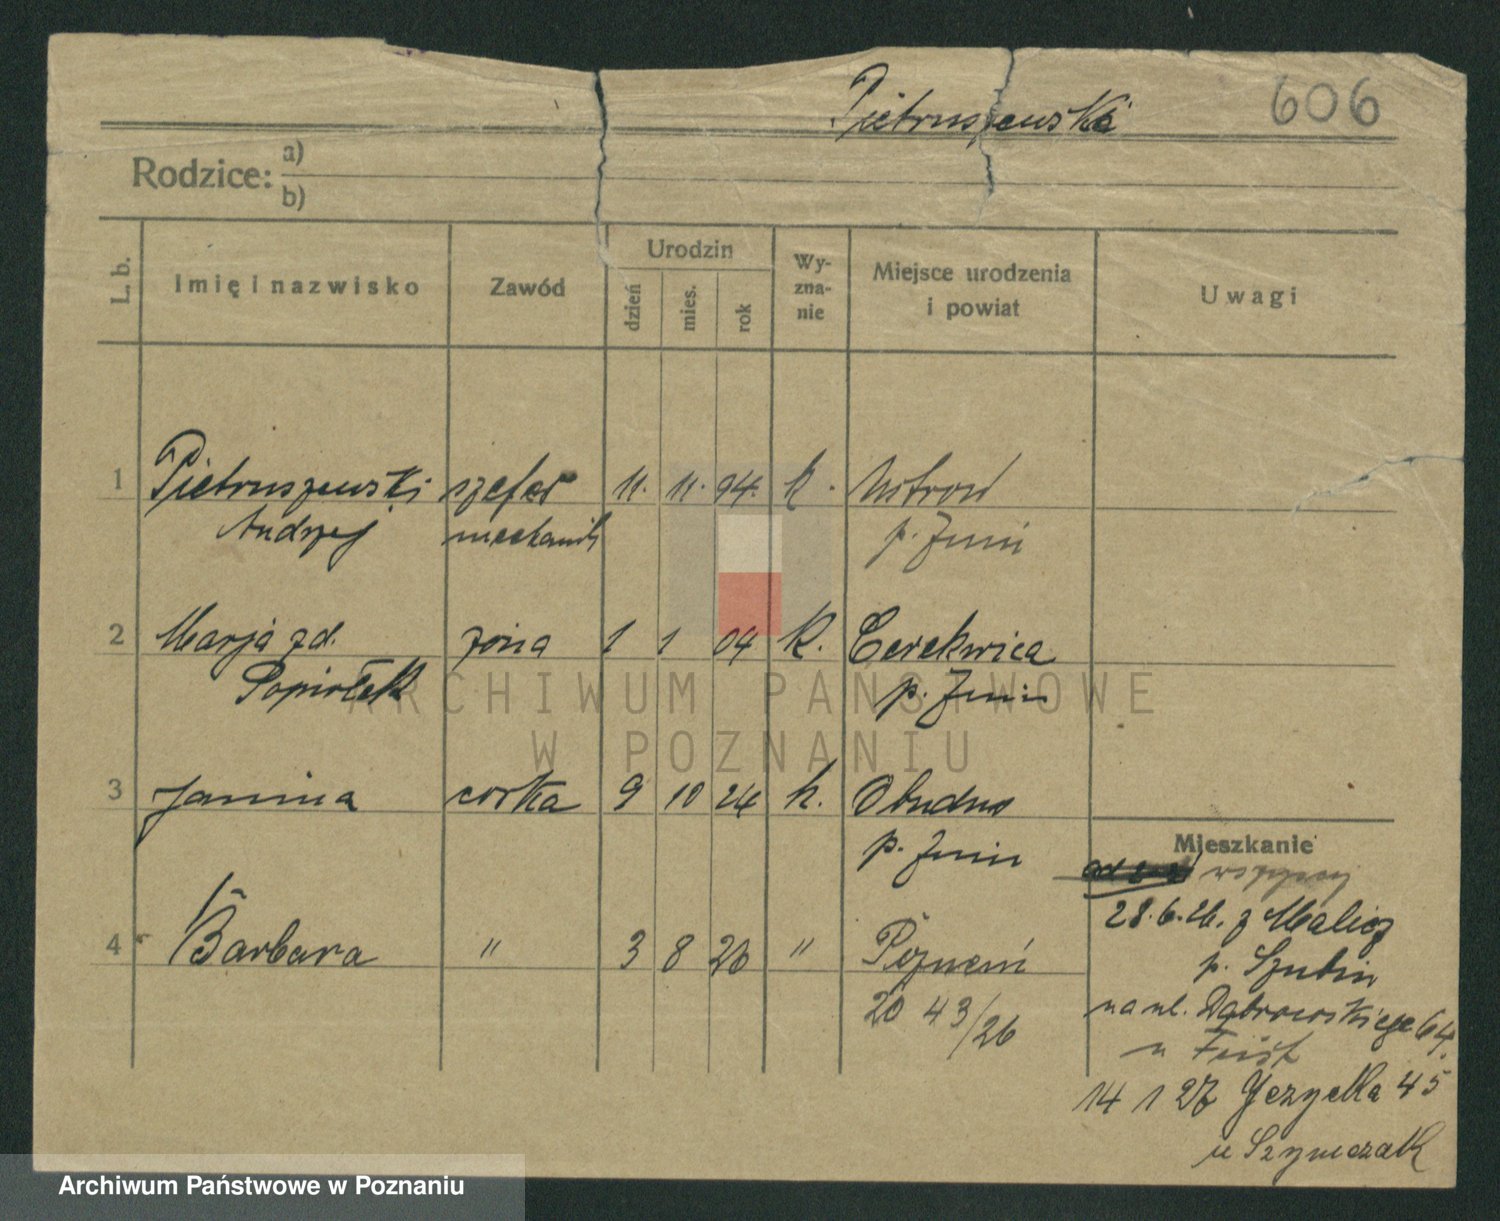 Pietruszewski 606
Rodzice: a)
b)
L. b. Imię i nazwisko Zawód Urodzin Wy-zna-nie Miejsce urodzenia i powiat Uwagi
dzień mies. rok
1 Pietruszewski szefer 11. 11. 94. k. Ustrow
Andrzej mechanik p. Znin
2 Marja zd. żona 1 1 04 k. Cerekwica
Popiołek p. Znin
3 Janina corka 9 10 24 k. Obudno
p. Znin
Mieszkanie
wszyscy
28.6.26. z Malicz
4 Barbara " 3 8 26 " Poznań
p. Szubin
20 43/26
na ul. Dąbrowskiego 64.
u
14 1 27 Jezycka 45
u Szymczak
ARCHIWUM PAŃSTWOWE
W POZNANIU
Archiwum Państwowe w Poznaniu